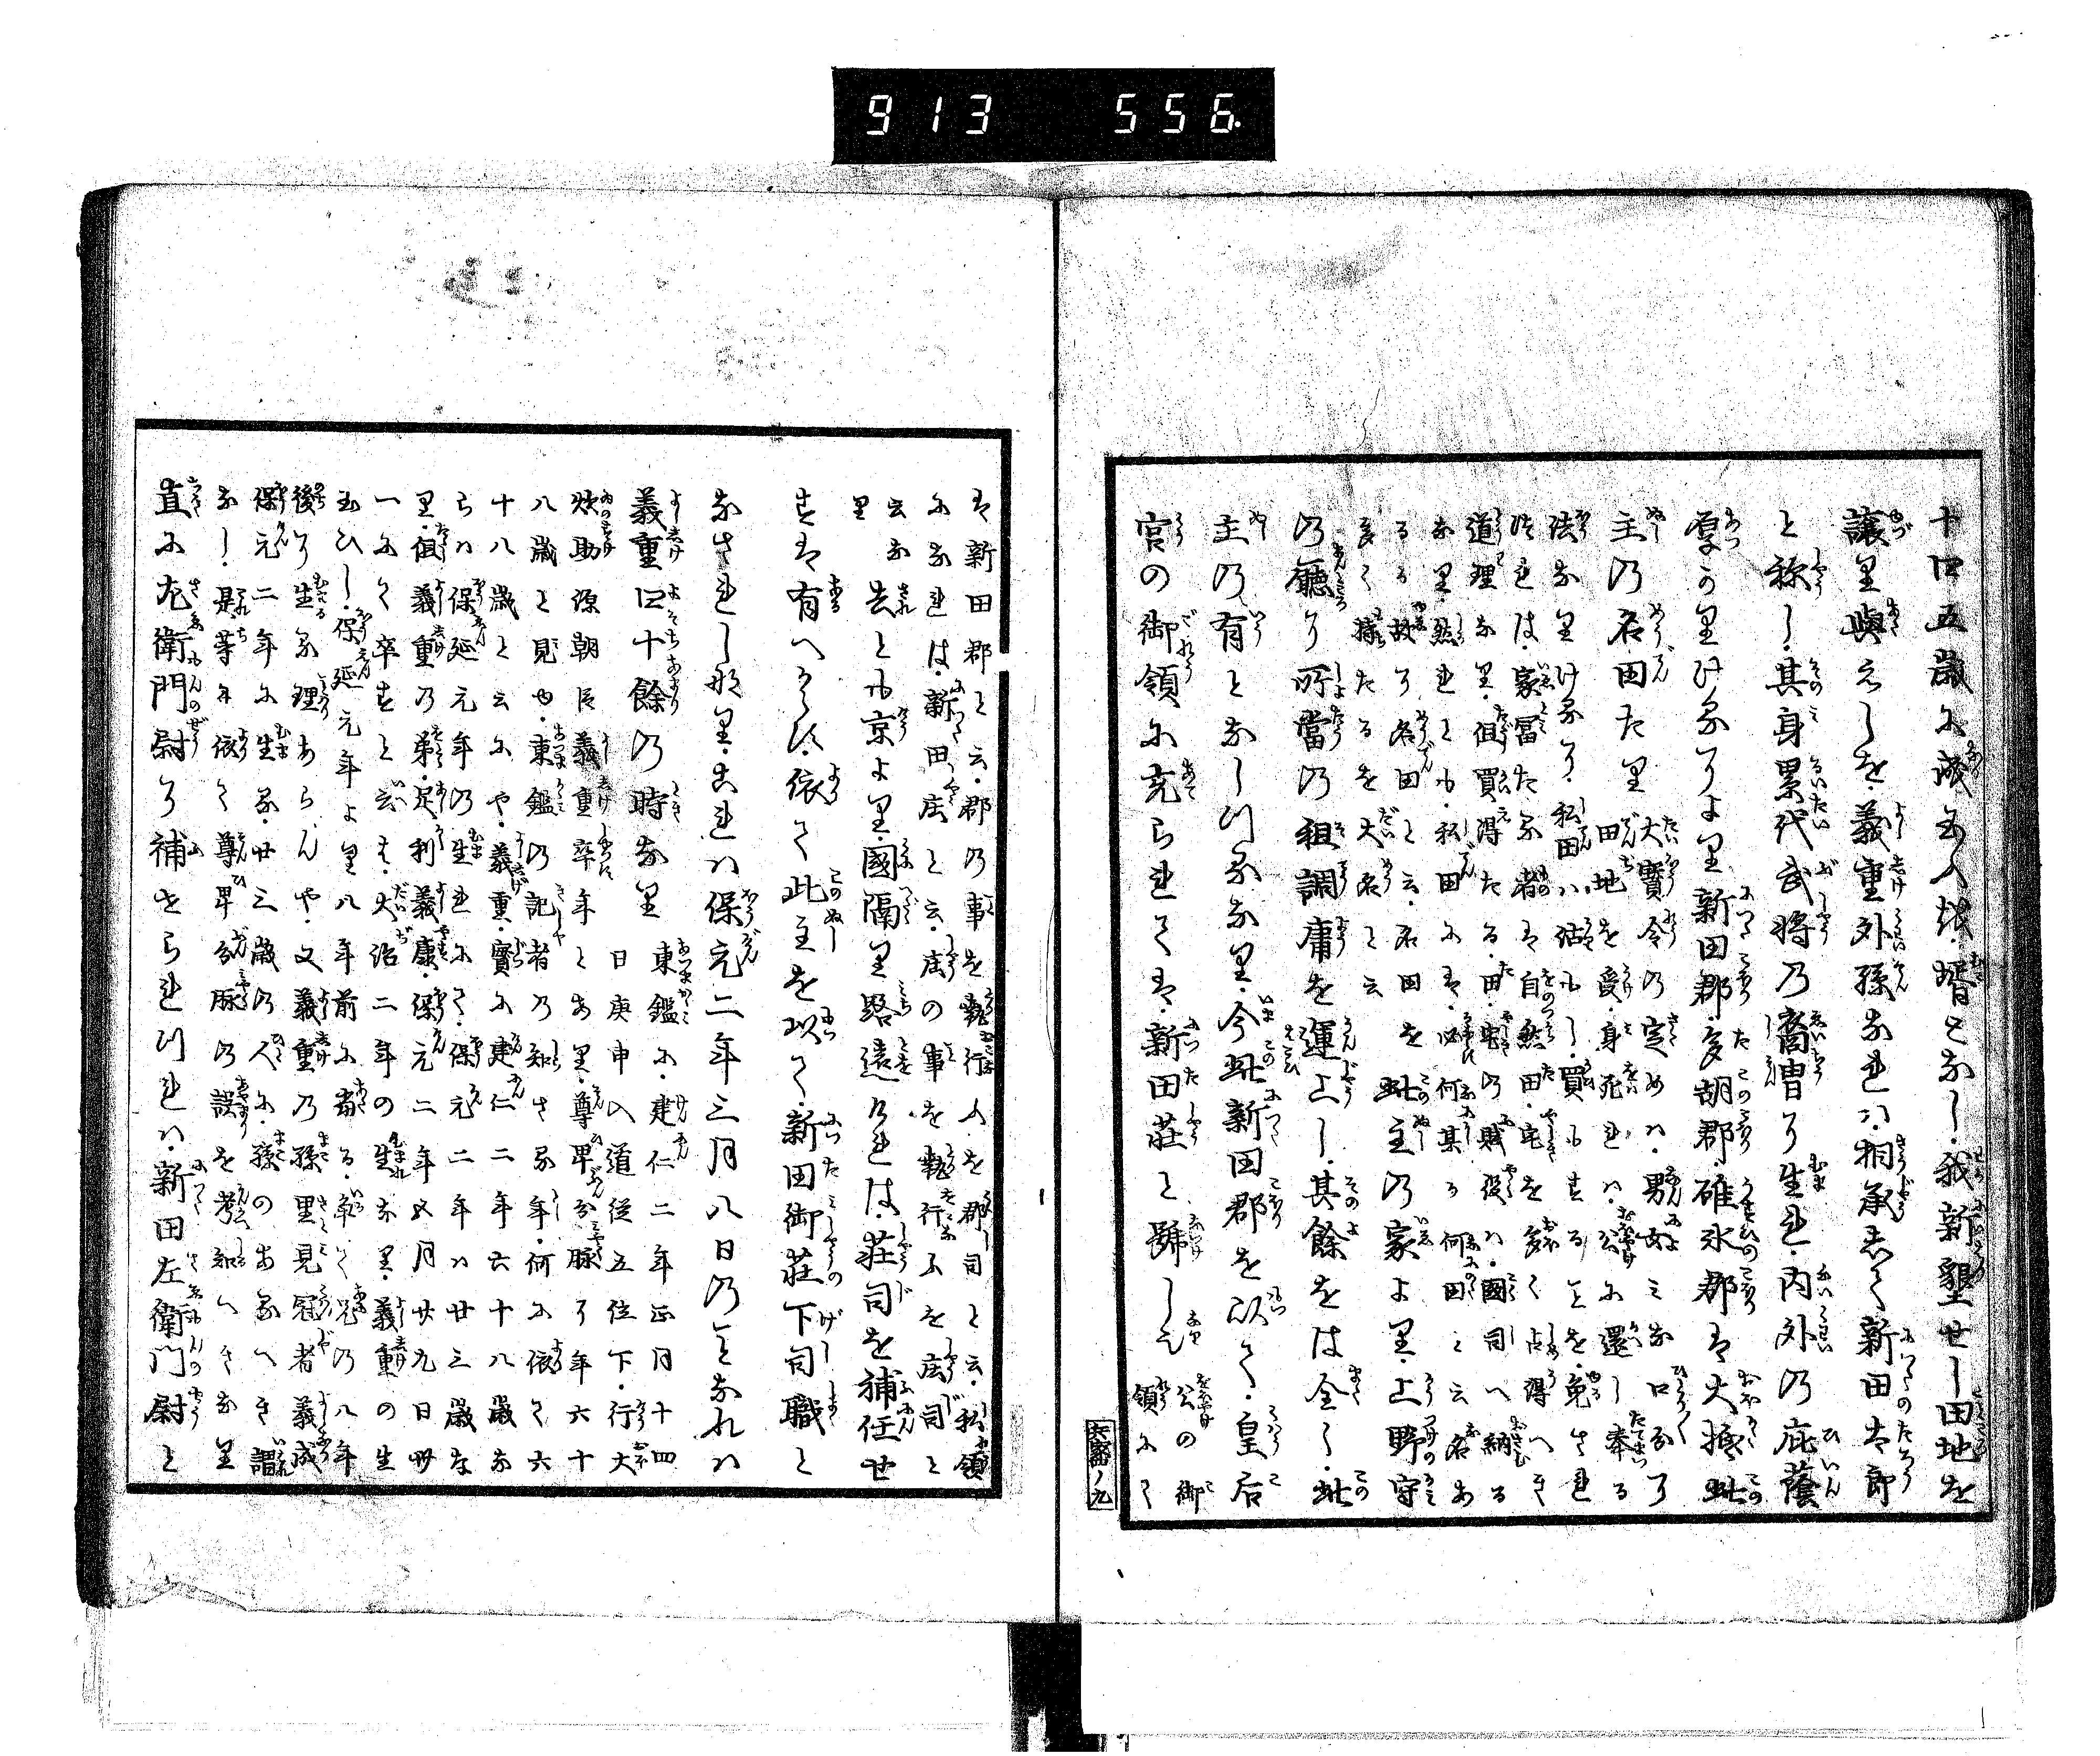 913 556
十四五歳に成玉ふ比婿となし我新墾せし田地を
譲り與えしを義重外孫なれハ相承志て新田太郎
と称し其身累代武将乃裔冑に生れ内外の庇蔭
厚かりけるにより新田郡多胡郡碓氷郡は大抵此
主の名田たり
大寶令の定めハ男女ミな口分
田地を受身死れハ公に還し奉る
法なりける
私田ハ沽もし買もする㕝を免され
つれは家冨たる者は自然田宅を多く占得へき
道理なり但買得たる田宅の賦役ハ國司へ納る
なり然れとも私田には必何某の何田と云名あ
る故に名田と云名田を
多く持たるを大名と云
此主の家より上野守
の廳に所當の租調庸を運上し其餘をは全く此
主の有となしける也今此新田郡を以て皇后
宮の御領に充られては新田荘と號し
公の御
領にて
は新田郡と云郡の事を執行ふを郡司と云私領
になれは新田庄と云庄の事を執行ふを庄司と
云な
り
去とも京より國隔り路遠けれは荘司を補任せ
すは有へからす依て此主を以て新田御荘下司職と
なされし也これハ保元二年三月八日の㕝なれハ
義重四十餘の時なり
東鑑に建仁二年正月十四
日庚申入道従五位下行大
炊助源朝臣義重卒年とあり尊卑分脉に年六十
八歳と見ゆ東鑑の記者の知さる年何に依て六
十八歳と云にや義重實に建仁二年六十八歳な
らハ保延元年の生れにて保元二年ハ廿三歳な
り但義重の弟足利義康保元二年五月廿九日卅
一にて卒すと云は大治二年の生なり義重の生
玉ひし保延元年より八年前に當る弟にて兄の八年
後に生る理あらんや又義重の孫里見冠者義成
保元二年に生る廿三歳の人に孫のあるへき謂
なし是等に依て尊卑分脉の誤を考知へきなり
直に左衛門尉に補せられけれハ新田左衛門尉と